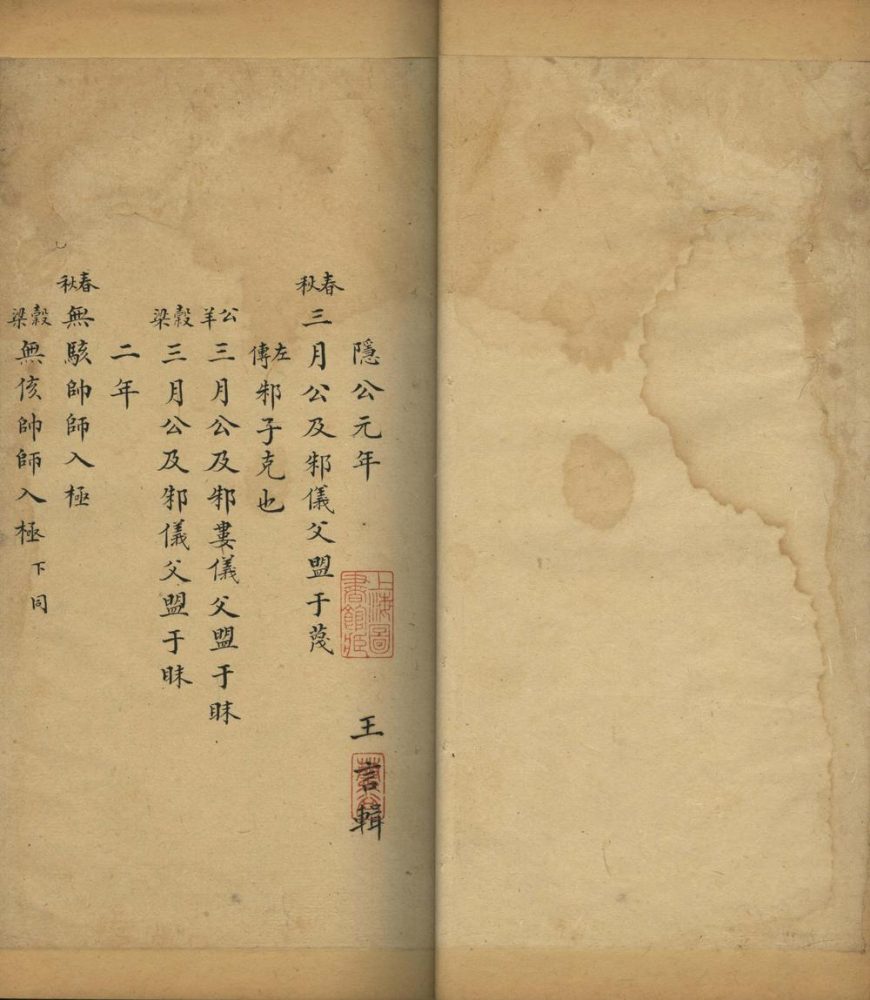 隱公元年 王言輯
上海圖書館藏
春秋三月公及邾儀父盟于蔑
左傳邾子克也
公羊三月公及邾婁儀父盟于眛
穀梁三月公及邾儀父盟于眛
二年
春秋無駭帥師入極
穀梁無侅帥師入極下同